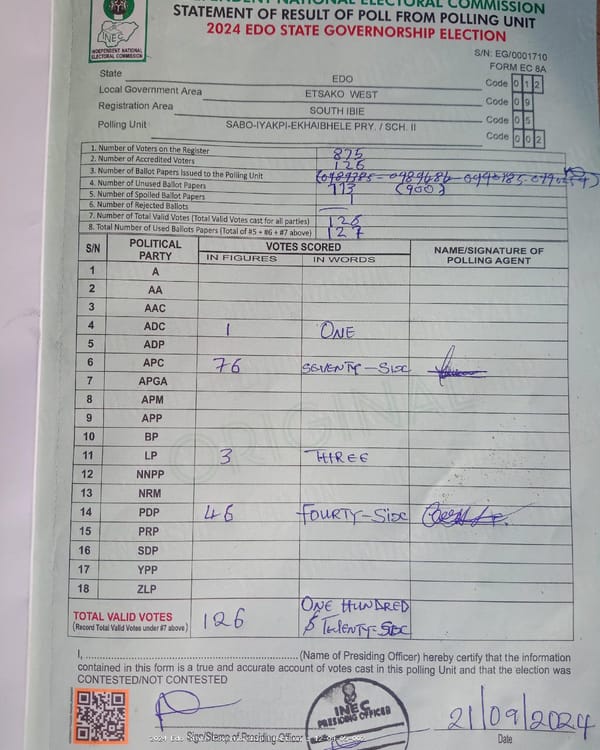 INDEPENDENT NATIONAL ELECTORAL COMMISSION
STATEMENT OF RESULT OF POLL FROM POLLING UNIT
2024 EDO STATE GOVERNORSHIP ELECTION
INEC
INDEPENDENT NATIONAL
ELECTORAL COMMISSION
S/N: EG/0001710
FORM EC 8A
State EDO Code 0 1 2
Local Government Area ETSAKO WEST Code 0 9
Registration Area SOUTH IBIE Code 0 5
Polling Unit SABO-IYAKPI-EKHAIBHELE PRY. / SCH. II Code 0 0 2
1. Number of Voters on the Register 875
2. Number of Accredited Voters 126
3. Number of Ballot Papers Issued to the Polling Unit
4. Number of Unused Ballot Papers 773 (900)
5. Number of Spoiled Ballot Papers 1
6. Number of Rejected Ballots
7. Number of Total Valid Votes (Total Valid Votes cast for all parties) 126
8. Total Number of Used Ballots Papers (Total of #5 + #6 + #7 above) 127
S/N POLITICAL PARTY VOTES SCORED NAME/SIGNATURE OF POLLING AGENT
IN FIGURES IN WORDS
1 A
2 AA
3 AAC
4 ADC 1 ONE
5 ADP
6 APC 76 SEVENTY-SIX
7 APGA
8 APM
9 APP
10 BP
11 LP 3 THREE
12 NNPP
13 NRM
14 PDP 46 FOURTY-SIX
15 PRP
16 SDP
17 YPP
18 ZLP
ORIGINAL
TOTAL VALID VOTES 126 ONE HUNDRED
(Record Total Valid Votes under #7 above) & TWENTY-SIX
I, (Name of Presiding Officer) hereby certify that the information
contained in this form is a true and accurate account of votes cast in this polling Unit and that the election was
CONTESTED/NOT CONTESTED
INEC
PRESIDING OFFICER
21/09/2024
Sign/Stamp of Presiding Officer Date